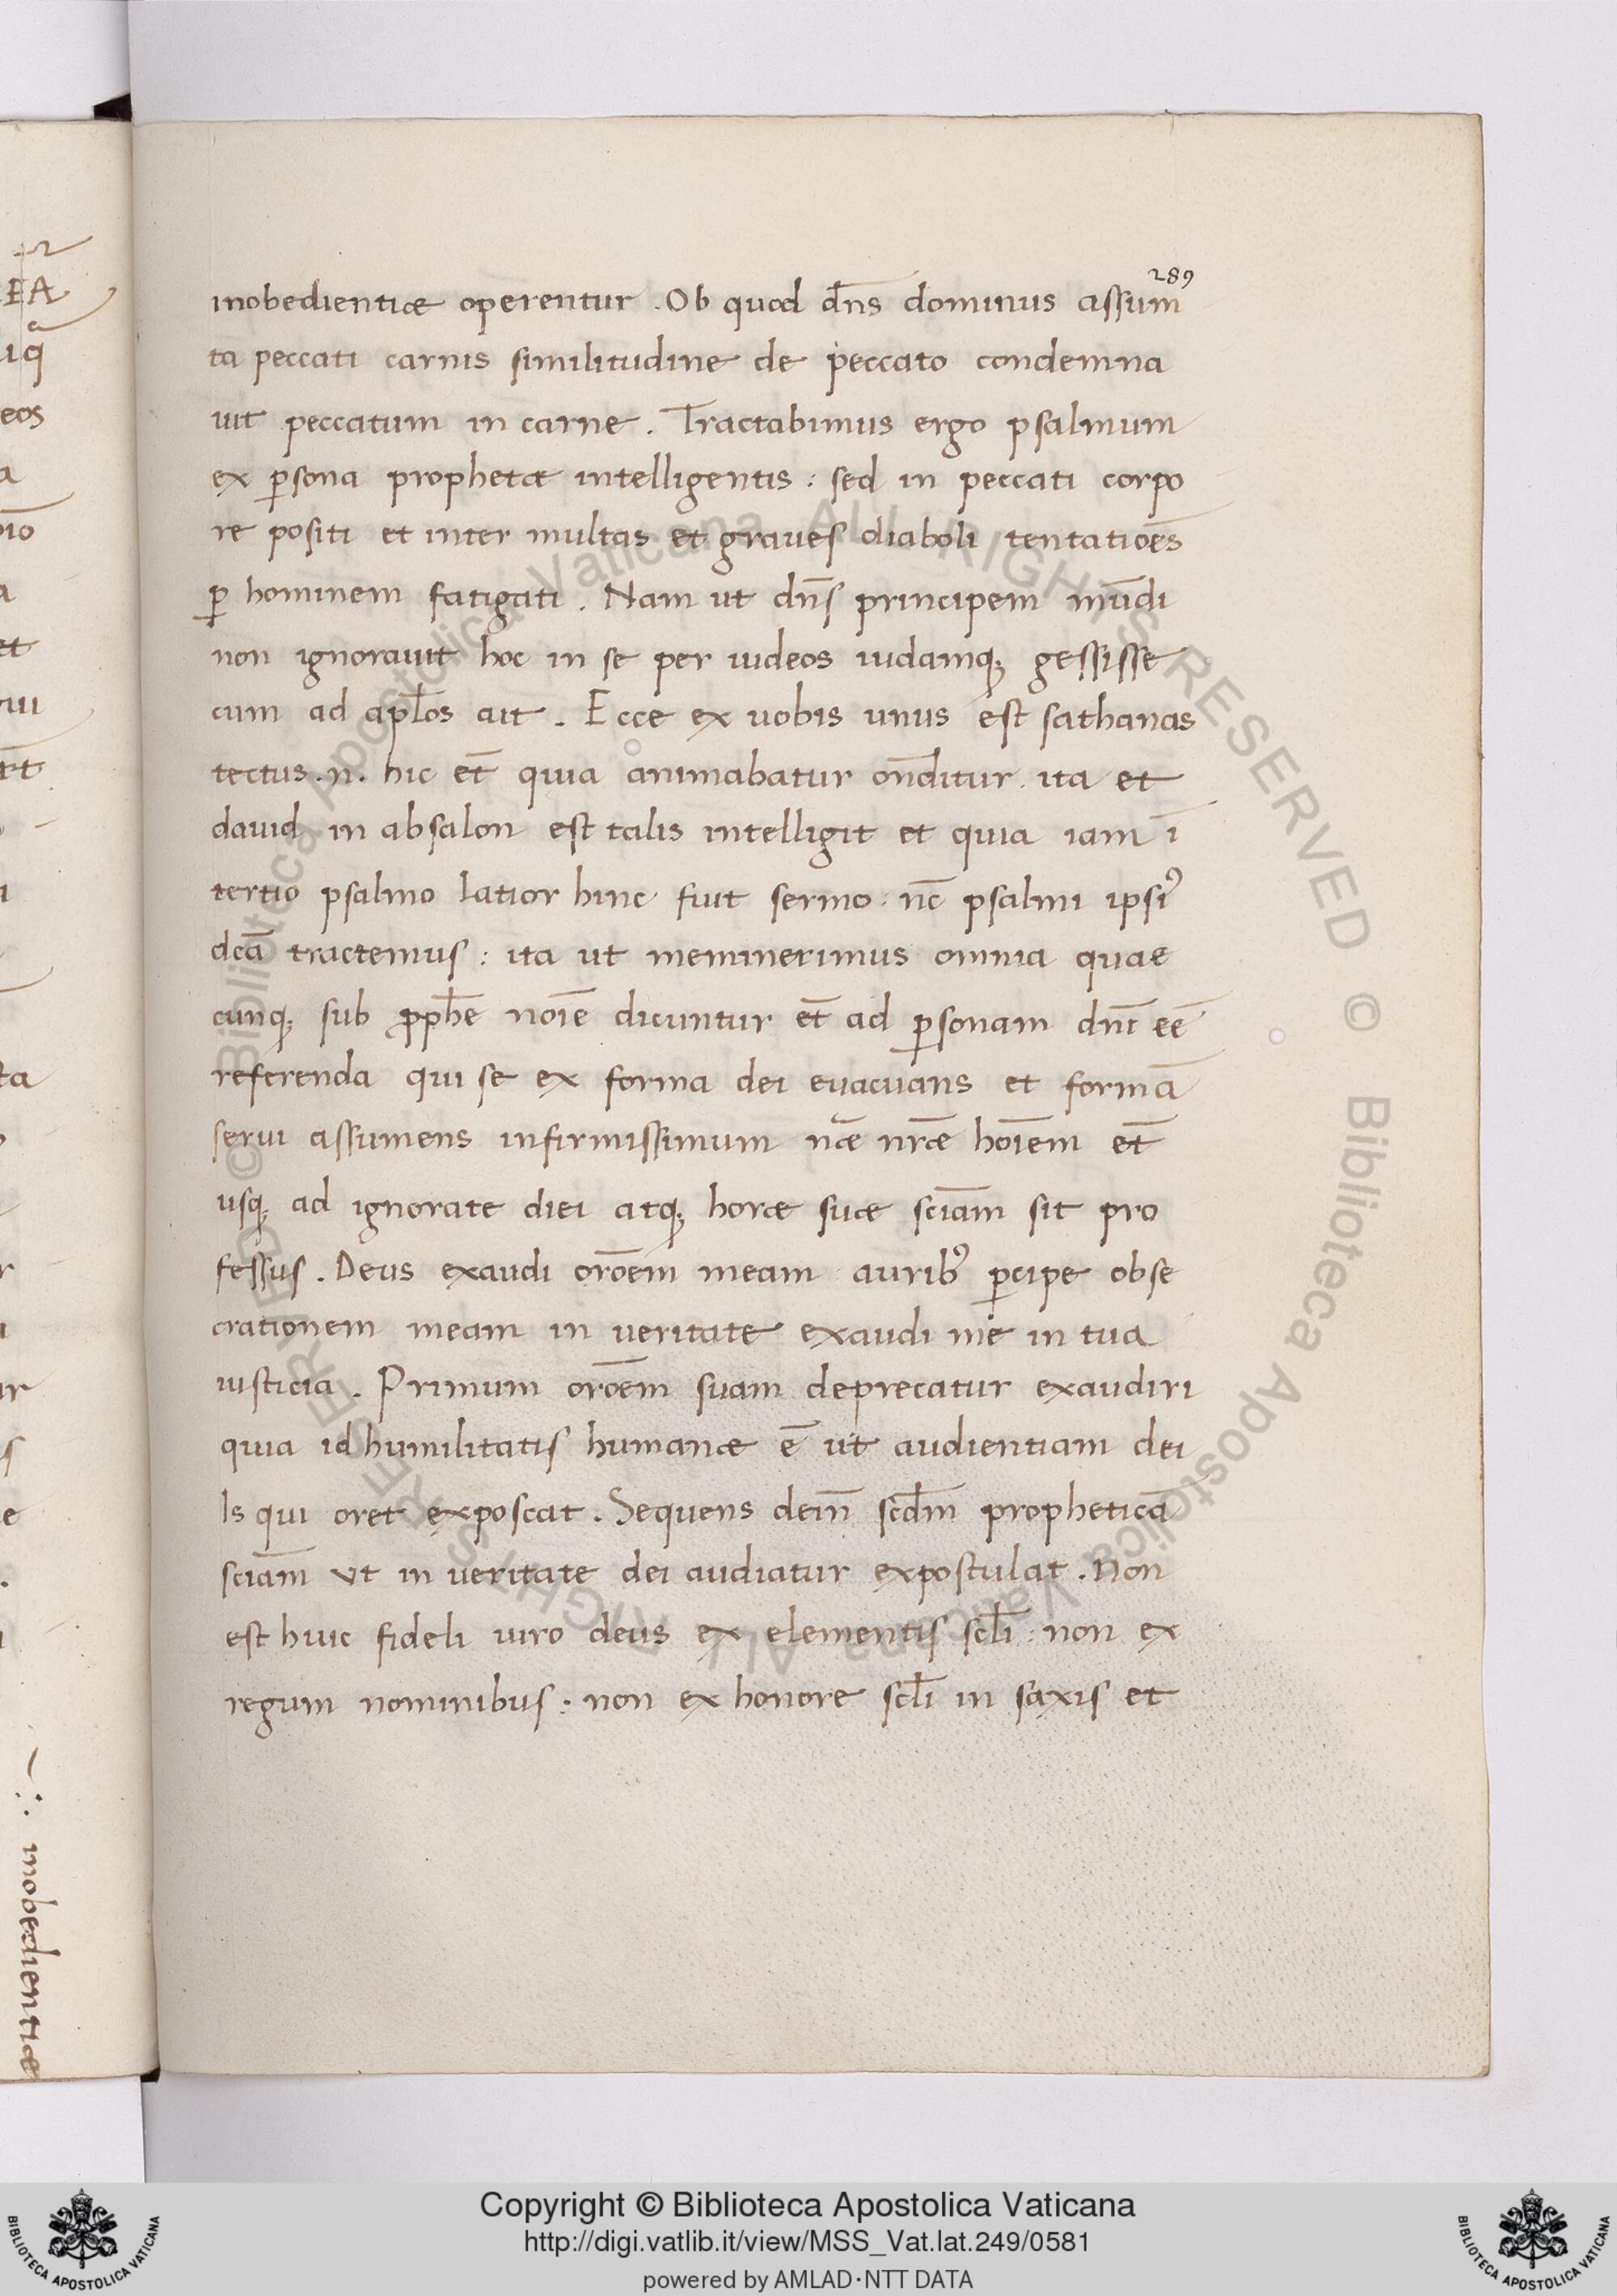 289
inobedientiæ operentur . Ob quod dn̄s dominus assum
ta peccati carnis similitudine de peccato condemna
uit peccatum in carne . Tractabimus ergo psalmum
ex ꝑsona prophetæ intelligentis : sed in peccati corpo
re positi et inter multas et graues diaboli tentatiōes
ꝑ hominem fatigati . Nam ut dn̄s principem mūdi
non ignorauit hoc in se per iudeos iudamqꝫ gessisse
cum ad apl̄os ait . Ecce ex uobis unus est sathanas
tectus .n. hic et̄ quia animabatur on̄ditur . ita et
dauid in absalon est talis intelligit et quia iam ī
tertio psalmo latior hinc fiut sermo : nc̄ psalmi ipsiꝰ
dcā tractemus : ita ut meminerimus omnia quae
cunqꝫ sub ꝓph̄e noīe dicuntur et̄ ad ꝑsonam dn̄i eē
referenda qui se ex forma dei euacuans et formā
serui assumens infirmissimum nāæ nr̄æ hoīem et̄
usqꝫ ad ignorate diei atqꝫ horæ suæ sciām sit pro
fessus . Deus exaudi orōem meam : auribꝰ ꝑcipe obse
crationem meam in ueritate exaudi me in tua
iusticia . Primum orōem suam deprecatur exaudiri
quia id humilitatis humanæ ē ut audientiam dei
Is qui oret exposcat . Sequens dein̄ scd̄m propheticā
sciām vt in ueritate dei audiatur expostulat . Non
est huic fideli uiro deus ex elementis scl̄i : non ex
regum nominibus : non ex honore scl̄i in saxis et
inobedientiæ
Copyright © Biblioteca Apostolica Vaticana
http://digi.vatlib.it/view/MSS_Vat.lat.249/0581
powered by AMLAD·NTT DATA